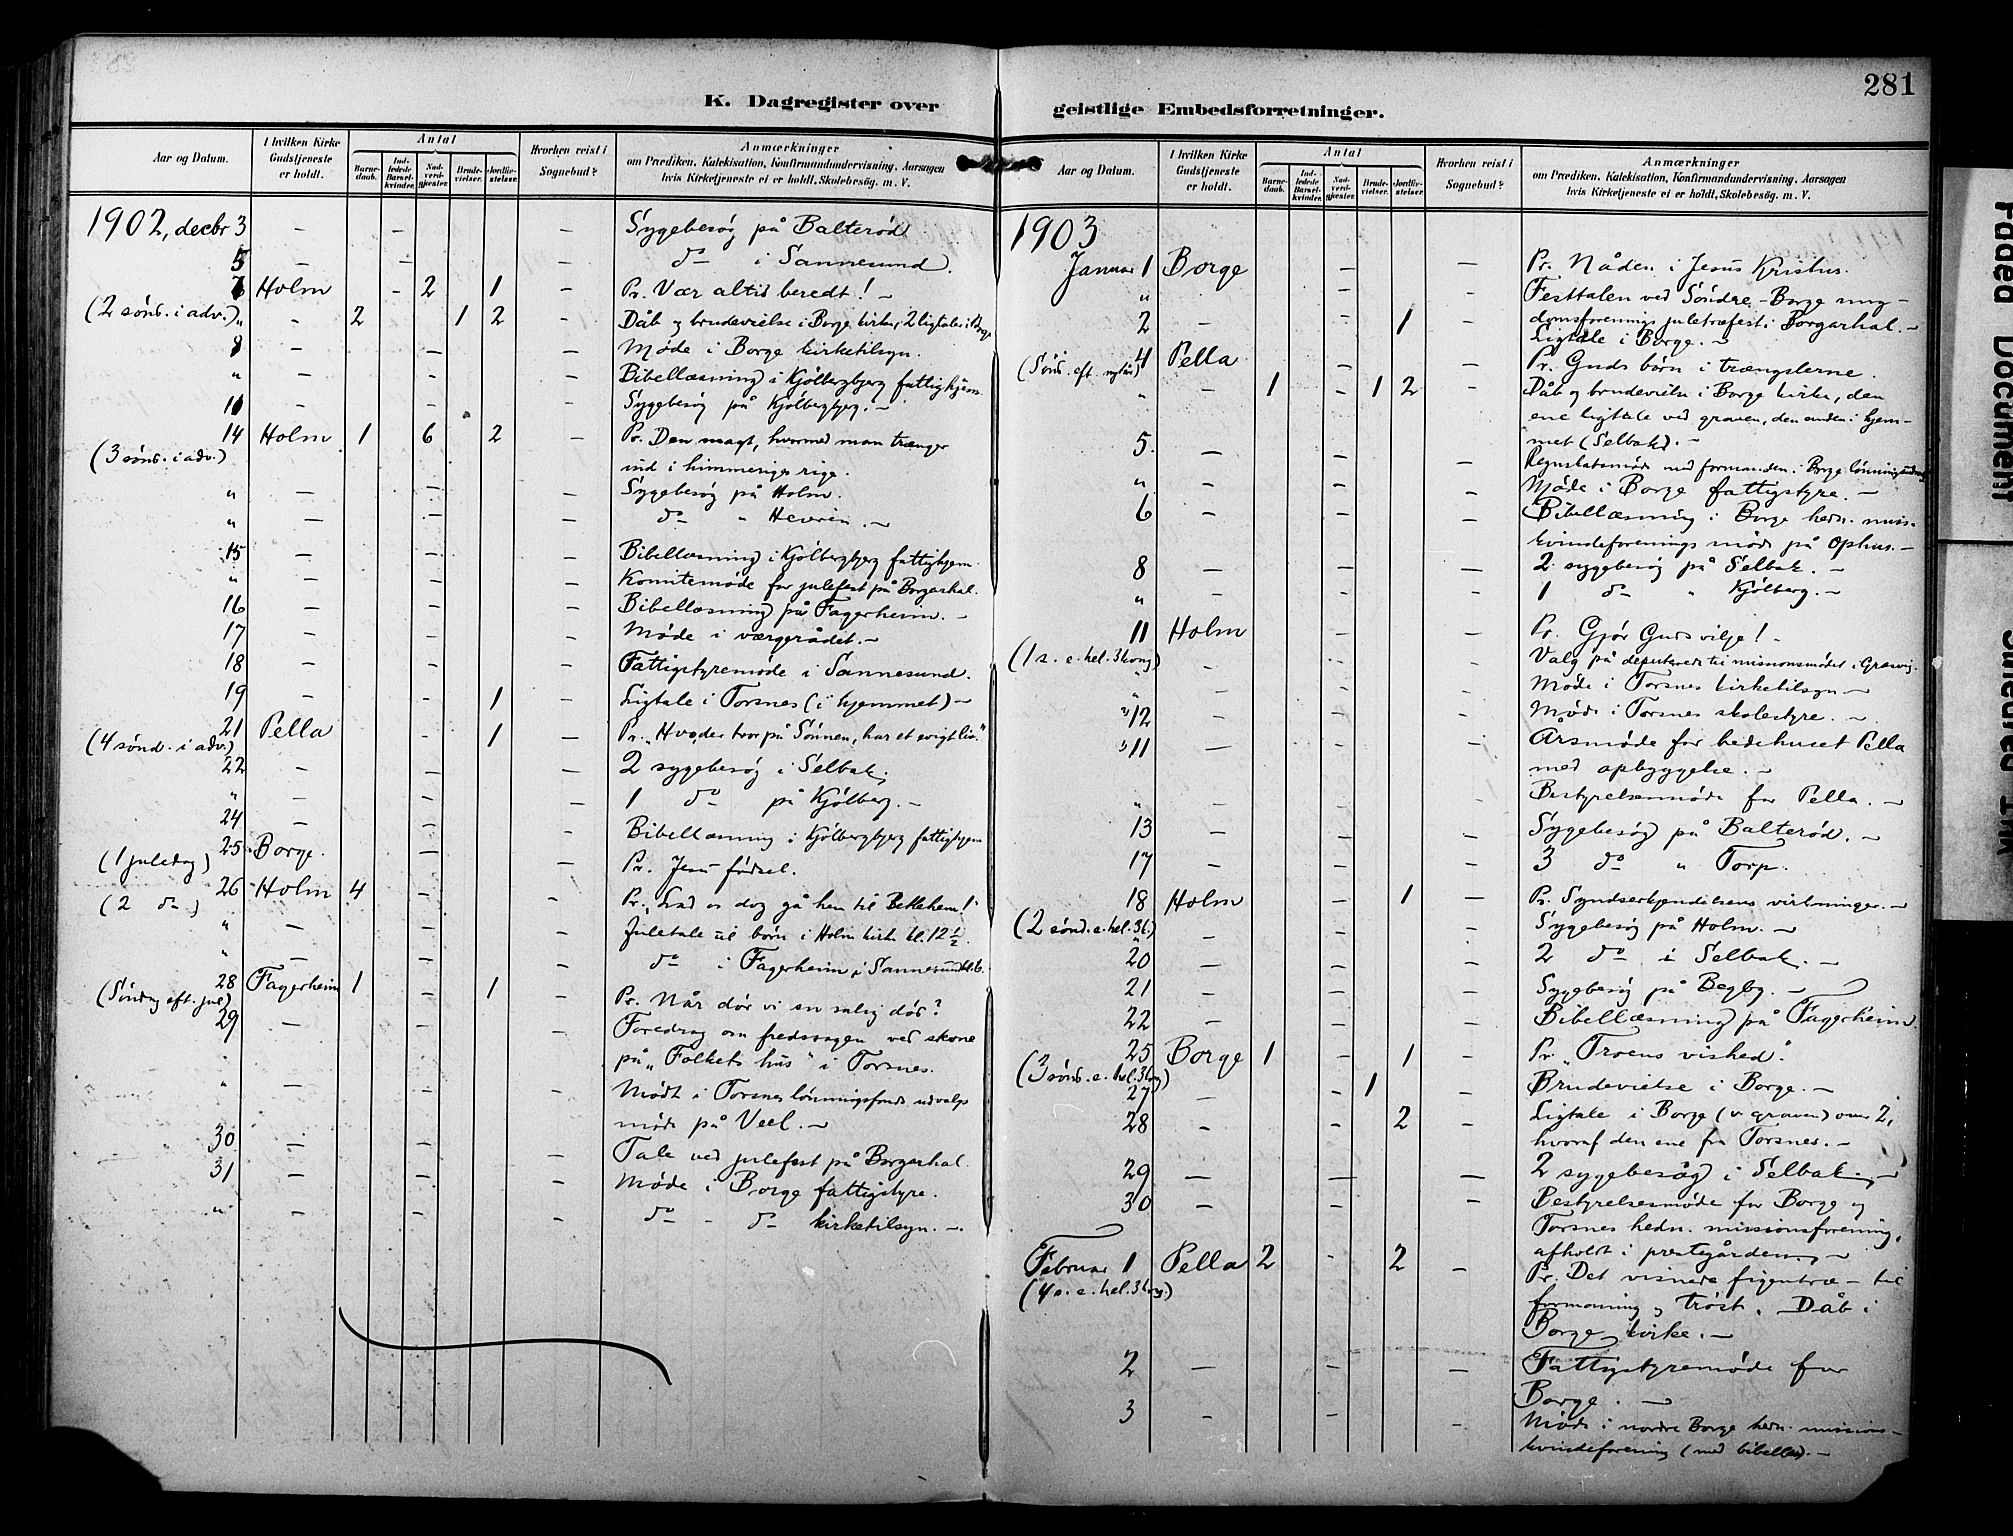 281
K. Dagregister over
geistlige Embedsforretninger.
Aar og Datum.
I hvilken Kirke Gudstjeneste er holdt.
Antal
Barnedaab.
Indledede Barselkvinder.
Nadverdgjester.
Brudevielser.
Jordfæstelser.
Hvorhen reist i Sognebud?
Anmærkninger
om Prædiken, Katekisation, Konfirmandundervisning, Aarsagen
hvis Kirketjeneste ei er holdt, Skolebesøg. m. V.
1902, decbr 3 - - - Sygebesøg på Balterød
5 - - - do i Sannesund.
7 Holm - 2 1 - Pr. Vær altid beredt! -
(2 sønd. i adv.) " - 2 1 2 - Dåb og brudevielse i Borge kirke, 2 ligtaler i Borge
8 - - - Møde i Borge kirketilsyn.
" - - - Bibellæsning i Kjølbergbjerg fattighjem.
11 - - - Sygebesøg på Kjølbergbjerg. -
14 Holm 1 6 2 - Pr. Den magt, hvormed man trænger
(3 sønd. i adv.) ind i himmeriges rige.
" - - - Sygebesøg på Holm.
" - - - do " -
15 - - - Bibellæsning i Kjølbergbjerg fattighjem.
" - - - Komitemøde for julefest på Borgarhal.
16 - - - Bibellæsning på Fagerheim. -
17 - - - Møde i værgerådet. -
18 - - - Fattigstyremøde i Sannesund.
19 - - 1 - Ligtale i Torsnes (i hjemmet) -
21 Pella - 1 - Pr. "Hvo, der tror på Sønnen, har et evigt liv."
(4 sønd. i adv.)
22 - - - 2 sygebesøg i Selbak.
" - - - 1 do på Kjølberg. -
24 - - Bibellæsning i Kjølbergbjerg fattighjem
25 Borge. - - Pr. Jesu fødsel.
(1 juledag)
26 Holm 4 - - Pr. "Lad os dog gå hen til Betlehem!"
(2 do)
" - - - Juletale til børn i Holm kirke kl. 12 ½.
" - - - do i Fagerheim i Sannesund kl. 6.
28 Fagerheim 1 1 - Pr. Når dør vi en salig død?
(Søndag eft. jul)
29 - - - Foredrag om fredssagen ved skone
på "Folkets hus" i Torsnes.
" - - - Mødt i Torsnes lønningsfonds udvalgs
møde på Veel. -
30 - - - Tale ved julefest på Borgarhal.
31 - - - Møde i Borge fattigstyre.
" - - - do - do kirketilsyn. -
Aar og Datum.
I hvilken Kirke Gudstjeneste er holdt.
Antal
Barnedaab.
Indledede Barselkvinder.
Nadverdgjester.
Brudevielser.
Jordfæstelser.
Hvorhen reist i Sognebud?
Anmærkninger
om Prædiken, Katekisation, Konfirmandundervisning, Aarsagen
hvis Kirketjeneste ei er holdt, Skolebesøg. m. V.
1903
Januar 1 Borge - - Pr. Nåden i Jesus Kristus.
" - - Festtalen ved Søndre-Borge ung-
domsforenings juletræfest i Borgarhal. -
2 - 1 - Ligtale i Borge. -
4 Pella - - Pr. Guds børn i trængslerne.
(Sønd. eft. nytår)
" - 1 - 1 2 - Dåb og brudevielse i Borge kirke, den
ene ligtale ved graven, den anden i hjem-
met (Selbak). -
5. - - - Regnskabsmøde med formanden i Borge lønningsudvalg
" - - - Møde i Borge fattigstyre. -
6 - - - Bibellæsning i Borge hedn. miss.
kvindeforenings møde på Ophus. -
8 - - - 2 sygebesøg på Selbak. -
" - - - 1 do " Kjølberg. -
11 Holm - - Pr. Gjør Guds vilje! -
(1 s. e. hel. 3 kong) - - - Valg på deputerede til missionsmødet i Græsvig.
" - - - Møde i Torsnes kirketilsyn -
" 12 - - - Møde i Torsnes skolestyre. -
" 11 - - - Årsmøde for bedehuset Pella
med opbyggelse. -
" - - - Bestyrelsesmøde for Pella. -
13 - - - Sygebesøg på Balterød. -
17 - - - 3 do " Torp.
18 Holm - 1 - Pr. Syndserkjendelsens virkninger. -
(2 sønd. e. hel. 3 k.) - - - Sygebesøg på Holm. -
20 - - - 2 do i Selbak. -
21 - - - Sygebesøg på Begby. -
22 - - - Bibellæsning på Fagerheim.
25 Borge 1 - 1 - Pr. "Troens vished".
(3 sønd. e. hel. 3 kong)
27 - 1 - Brudevielse i Borge. -
28 - - 2 - Ligtale i Borge (v. graven) over 2,
hvoraf den ene fra Torsnes. -
29 - - - 2 sygebesøg i Selbak. -
30 - - - Bestyrelsesmøde for Borge og
Torsnes hedn. missionsforening,
afholdt i prestegården. -
Februar 1 Pella 2 - 2 - Pr. Det visnede figentræ - til
(4 s. e. hel. 3 kong.) formaning og trøst. Dåb i
Borge kirke. -
2 - - - Fattigstyremøde for
Borge. -
3 - - - Møde i nordre Borge hedn. missions-
kvindeforening (med bibellæs). -
Faded Document